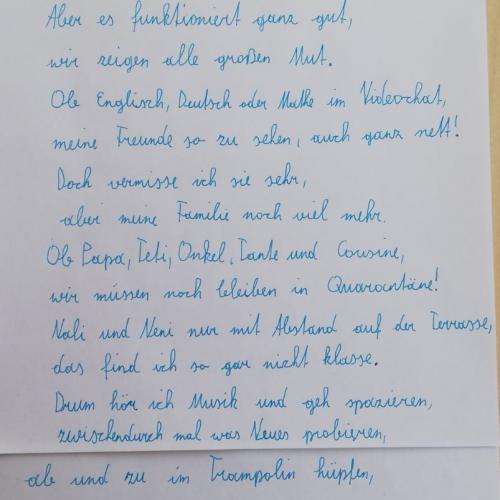 Aber es funktioniert ganz gut,
wir zeigen alle großen Mut.
Ob Englisch, Deutsch oder Mathe im Videochat,
meine Freunde so zu sehen, auch ganz nett!
Doch vermisse ich sie sehr,
aber meine Familie noch viel mehr.
Ob Papa, Teti, Onkel, Tante und Cousine,
wir müssen noch bleiben in Quarantäne!
Nali und Neni nur mit Abstand auf der Terrasse,
das find ich so gar nicht klasse.
Drum hör ich Musik und geh spazieren,
zwischendurch mal was Neues probieren,
ab und zu im Trampolin hüpfen,